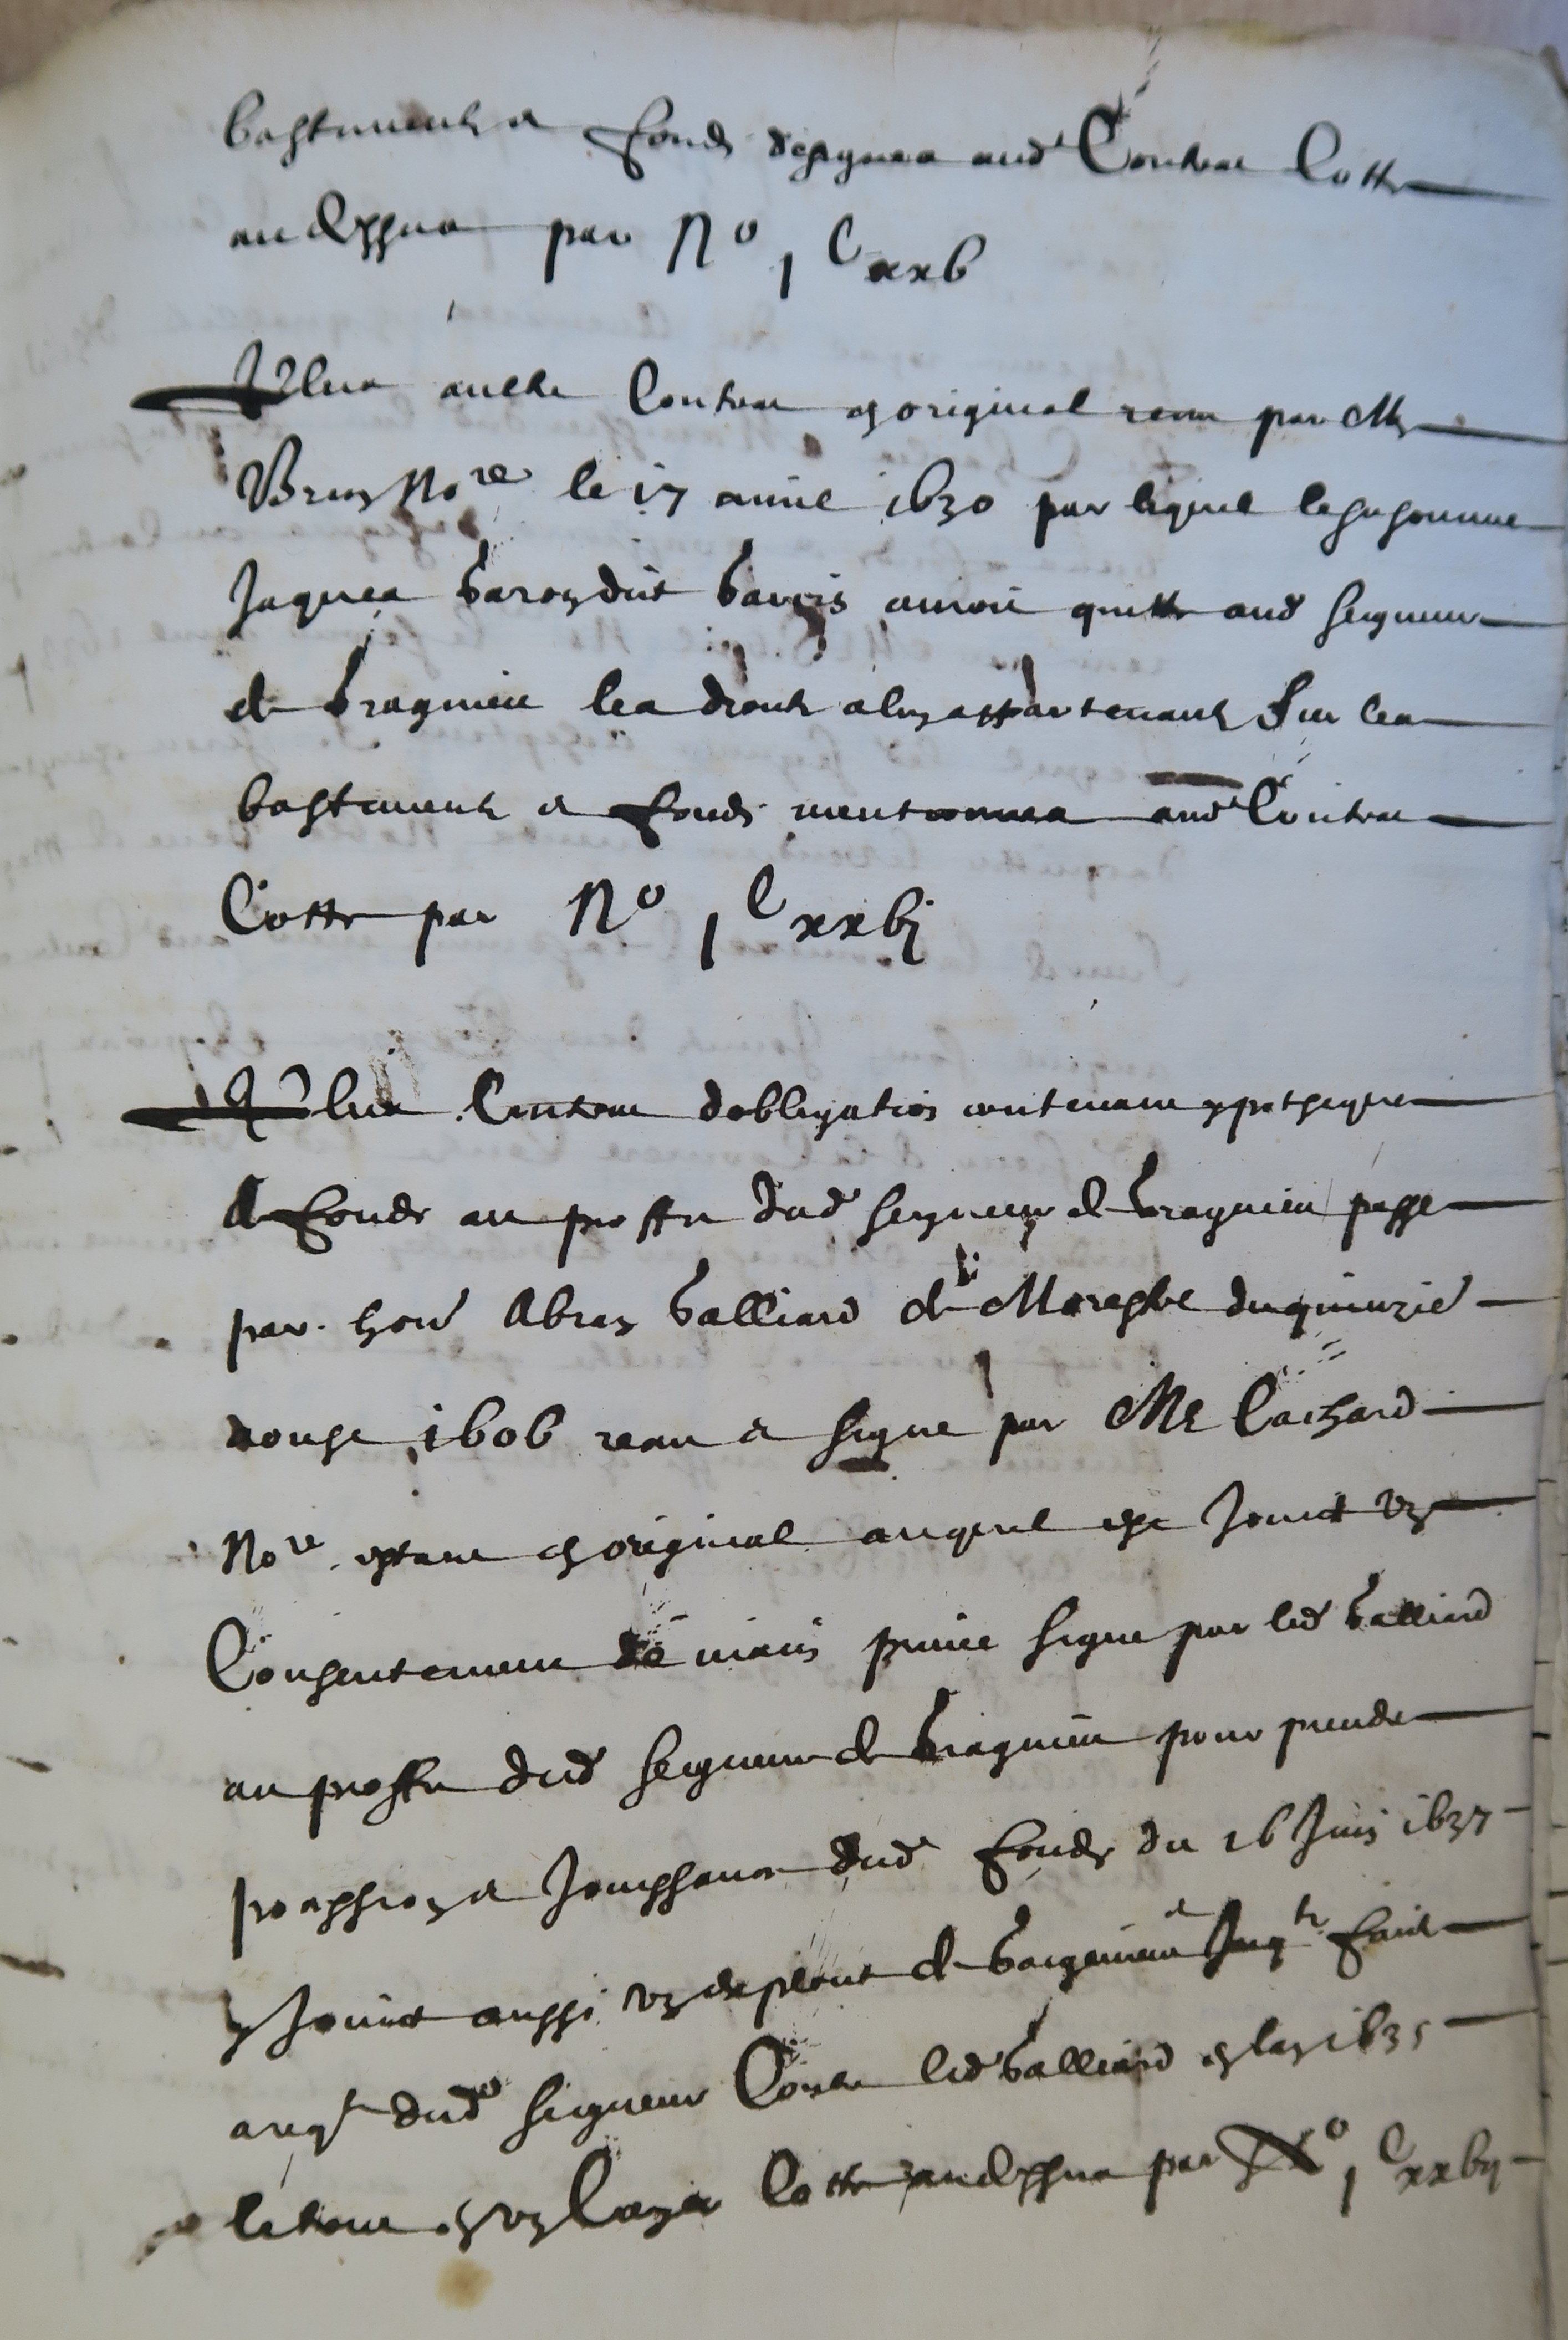 bastiments et fonds designes aud Contrat Cotte
au dessus par No 1 C xxb
Plus aultre Contrat en original receu par Me
Brun Nore le 17 auril 1630 par lequel le susnomme
Jaques baron dit auroit quitte aud seigneur
de bragnieu les droits a luy appartenants sur les
bastiments et fonds mentionnes aud Contrat
Cotte par No 1 C xxbj
Plus Contrat dobligation contenant ypotheque
de fonds au proffit dud seigneur de bragnieu passe
par hone Abran balliard de Morestel du quinzie
1606 receu et signe par Me Cachard
Nore estant en original auquel est Joinct vn
Consentement de main priuee signe par led balliard
au proffit dud seigneur de bragnieu pour prendre
possession et Jouissance dud fonds du 16 Juin 1637
y Joinct aussi vn exploict de faict
a reqte dud seigneur Contre led balliard en lan 1635
le tout en vn Cayer Cotte au dessus par No 1 C xxbij